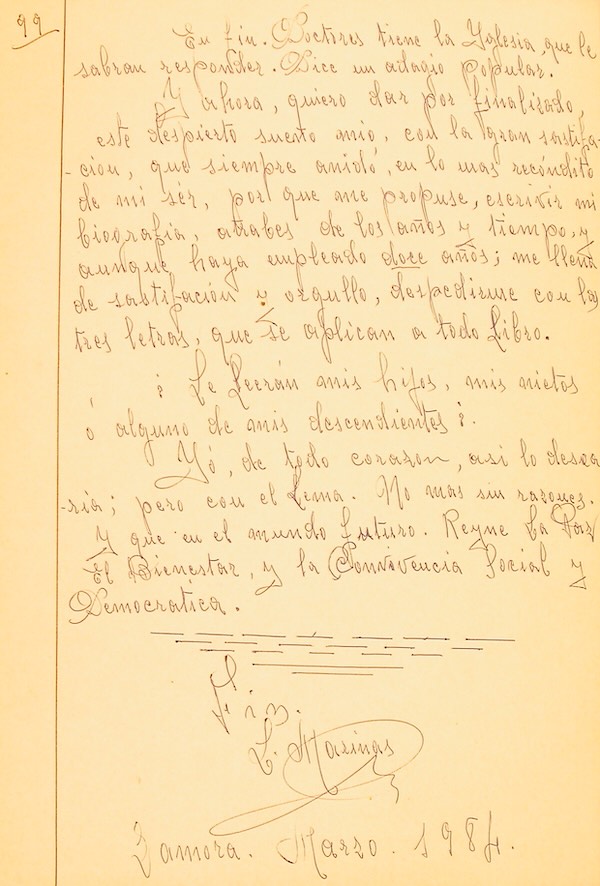 99
En fin. Doctores tiene la Yglesia, que le
sabran responder. Dice un adagio Popular.
Y ahora, quiero dar por finalizado,
este despierto sueño mio, con la gran sastifa-
-ción, que siempre anidó, en lo mas recóndito
de mi sér, por que me propuse, escrivir mi
biografia, atrabes de los años y tiempo, y
aunque haya empleado doce años; me llena
de sastifación y orgullo, despedirme con las
tres letras, que se aplican a todo Libro.
¿ Le Leerán mis hijos, mis nietos
ó alguno de mis descendientes ?.
Yó, de todo corazon, asi lo desea
-ria; pero con el Lema. No mas sin razones.
Y que en el mundo futuro. Reyne La Paz
El Bienestar, y la Convivencia Social y
Democratica.
Fin.
L. Mariñas
Zamora. Marzo. 1984.